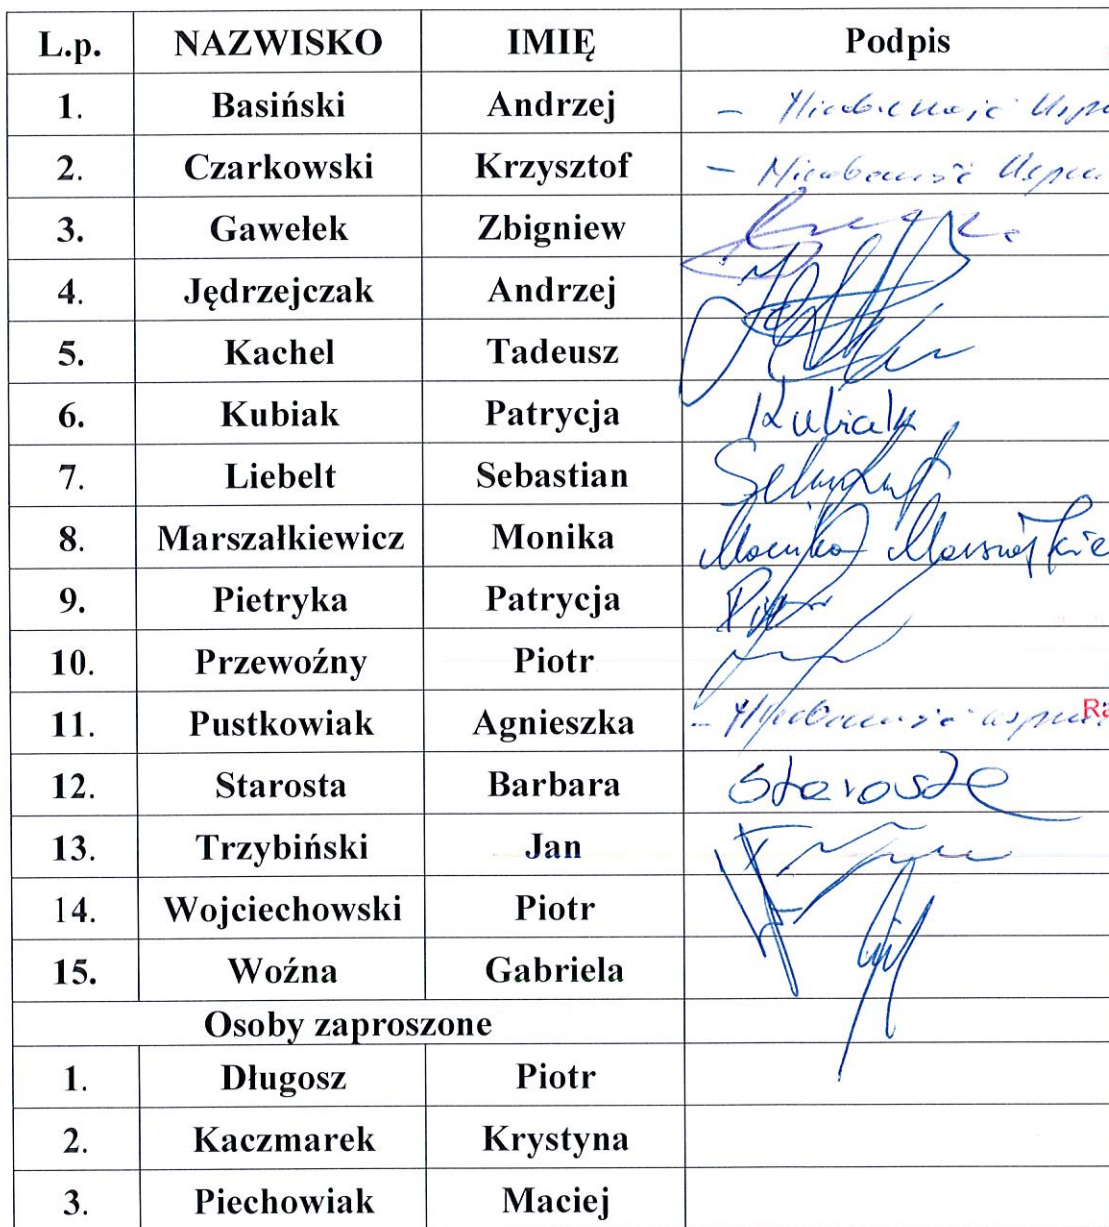 L.p. NAZWISKO IMIĘ Podpis
1. Basiński Andrzej -
2. Czarkowski Krzysztof -
3. Gawełek Zbigniew
4. Jędrzejczak Andrzej
5. Kachel Tadeusz
6. Kubiak Patrycja Kubiak
7. Liebelt Sebastian
8. Marszałkiewicz Monika Monika
9. Pietryka Patrycja
10. Przewoźny Piotr
11. Pustkowiak Agnieszka - Ra
12. Starosta Barbara Starosta
13. Trzybiński Jan
14. Wojciechowski Piotr
15. Woźna Gabriela
Osoby zaproszone
1. Długosz Piotr
2. Kaczmarek Krystyna
3. Piechowiak Maciej